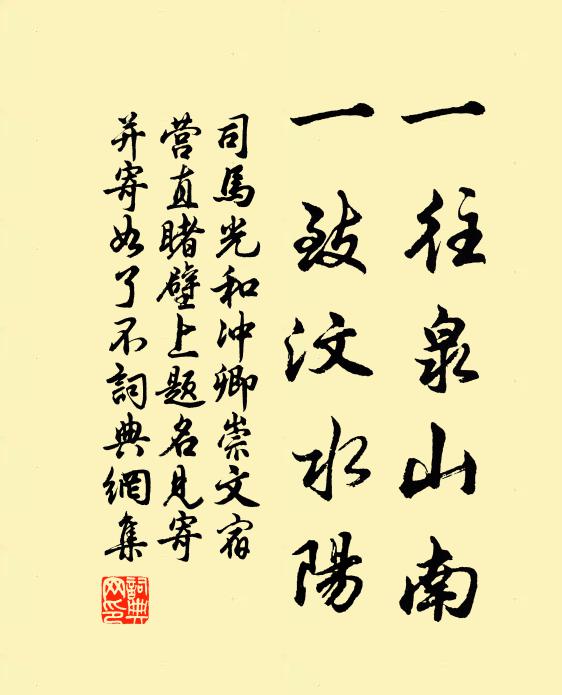 一往泉山南
一致汶水陽
司馬光和沖卿崇文宿
营直睹壁上題名見寄
并寄如了不詞典網集
詞典网印